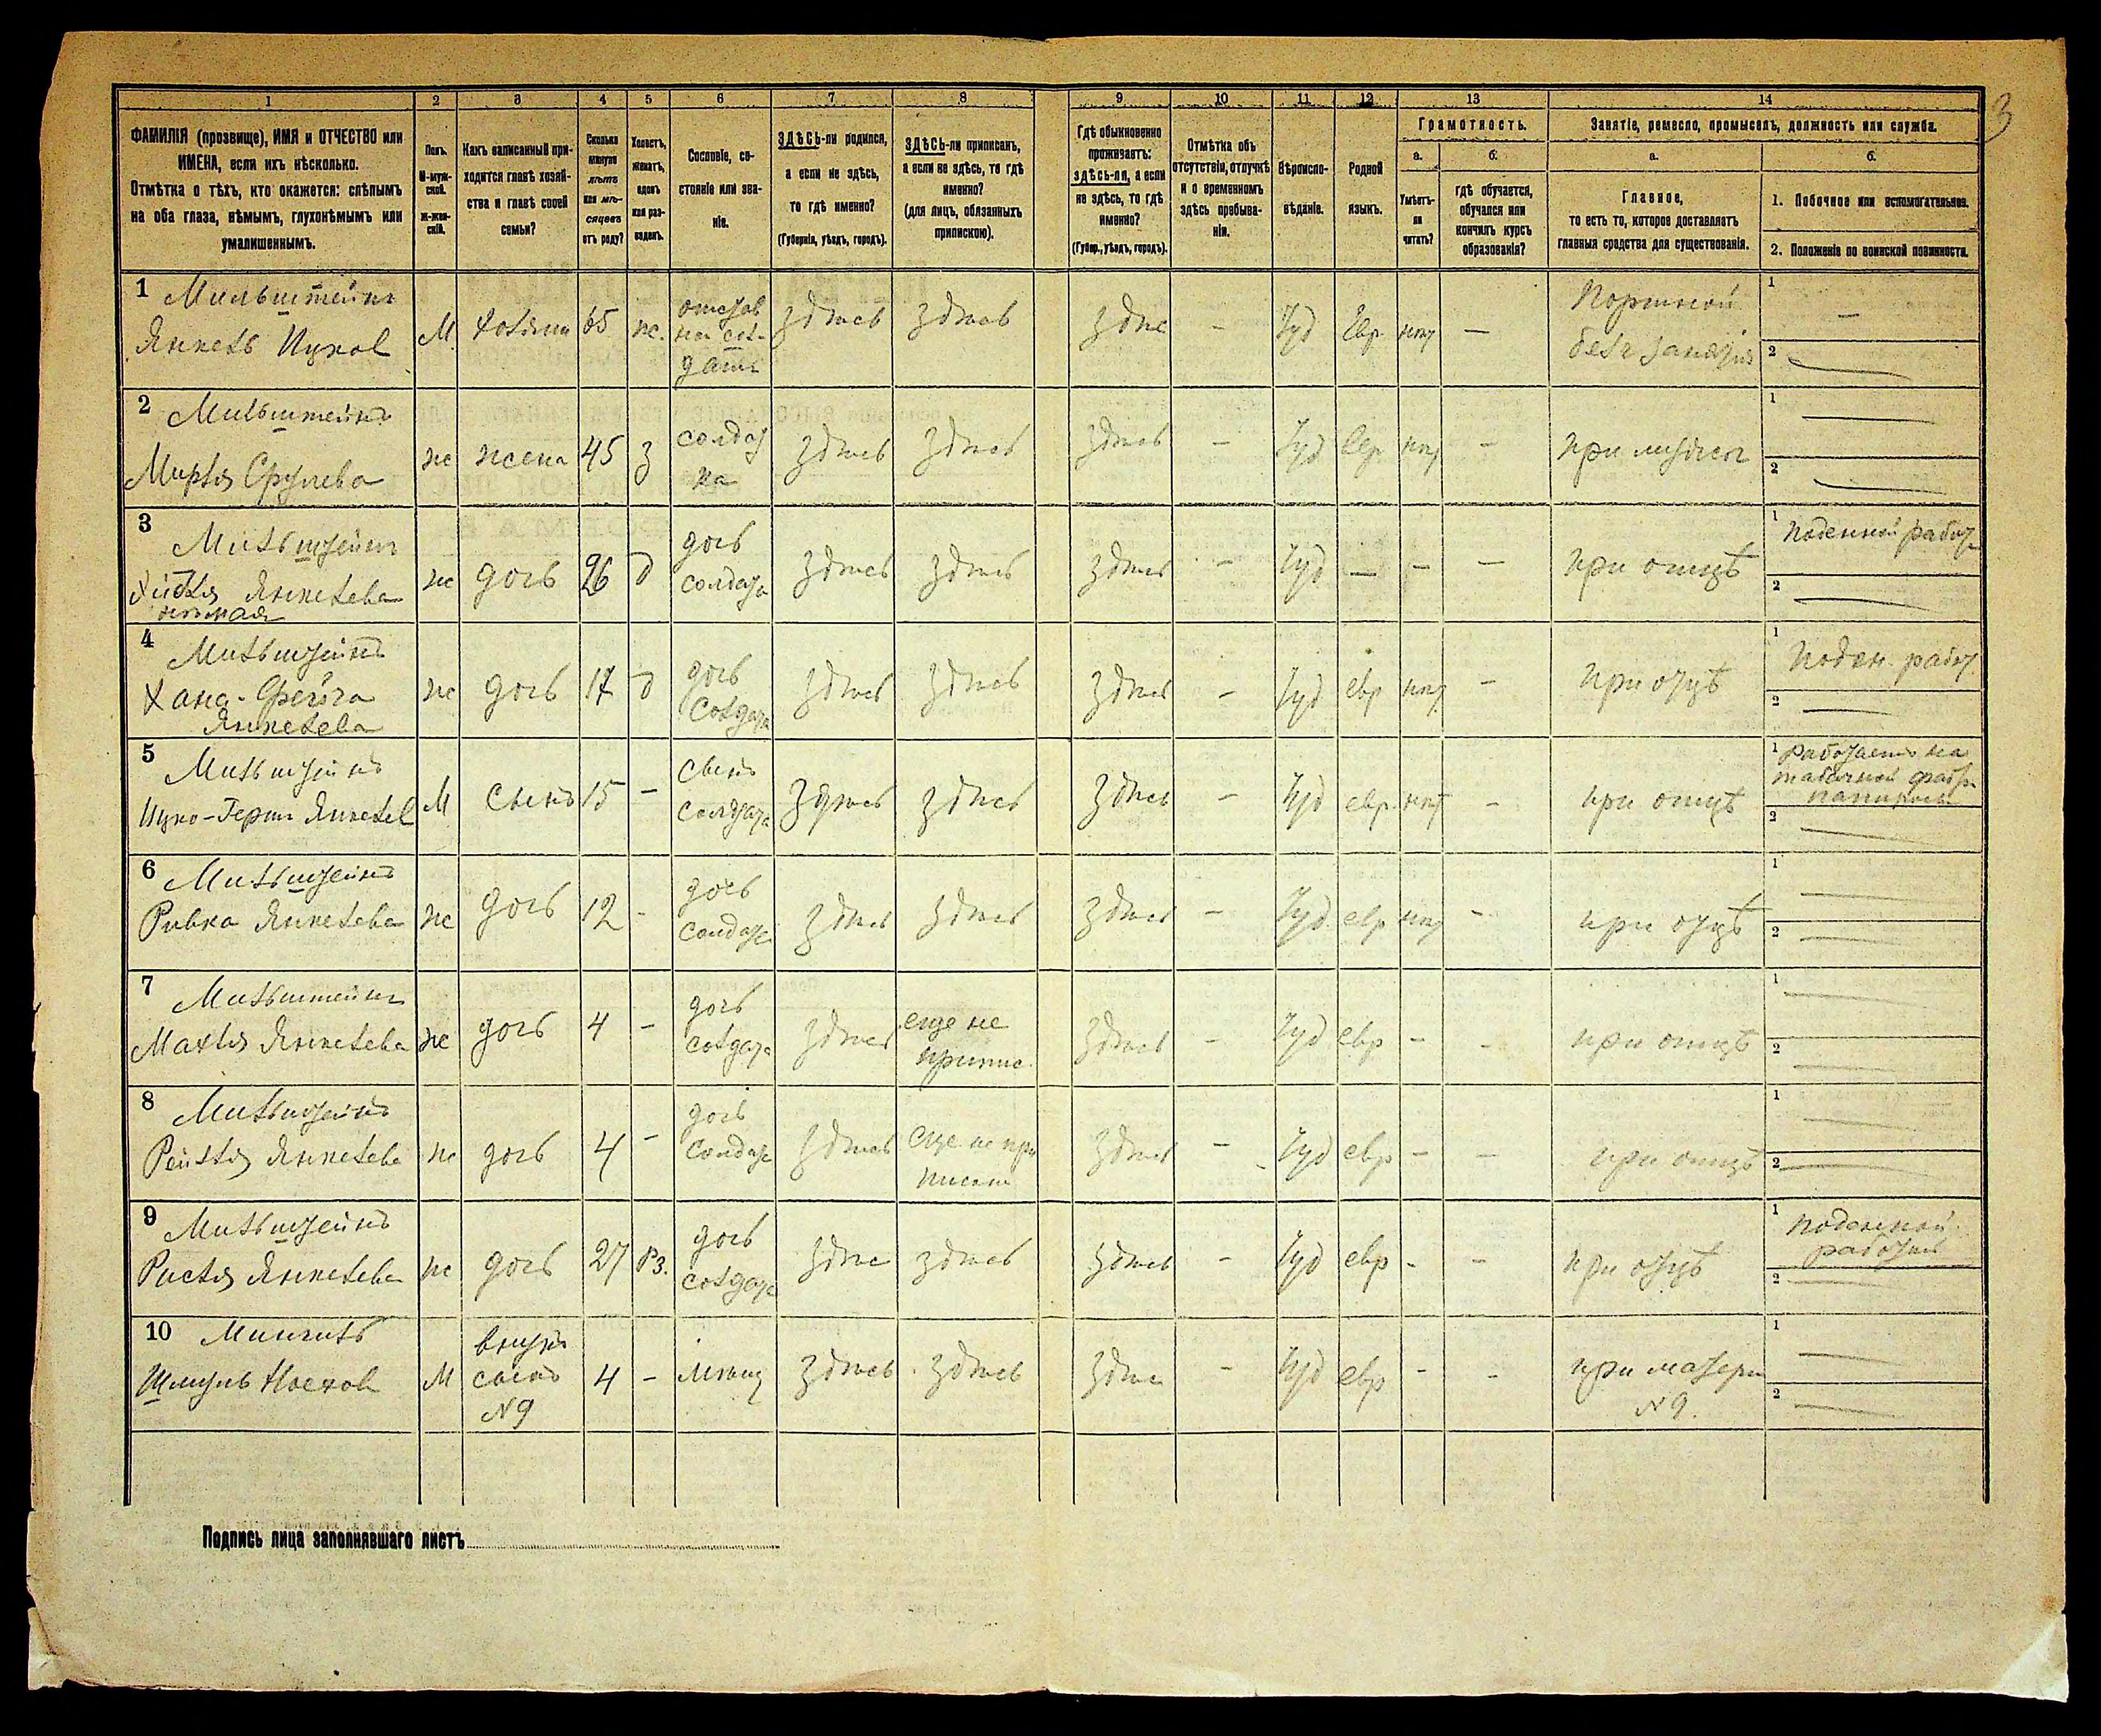 3
1 2 3 4 5 6 7 8 9 10 11 12 13 14
ФАМИЛІЯ (прозвище), ИМЯ и ОТЧЕСТВО или
ИМЕНА, если ихъ нѣсколько.
Отмѣтка о тѣхъ, кто окажется: слѣпымъ
на оба глаза, нѣмымъ, глухонѣмымъ или
умалишеннымъ.
Полъ.
М-муж-
ской.
Ж-жен-
скій.
Какъ записанный при-
ходится главѣ хозяй-
ства и главѣ своей
семьи?
Сколько
минуло
лѣтъ
или мѣ-
сяцевъ
отъ роду?
Холостъ,
женатъ,
вдовъ
или раз-
веденъ.
Сословіе, со-
стояніе или зва-
ніе.
ЗДѢСЬ-ли родился,
а если не здѣсь,
то гдѣ именно?
(Губернія, уѣздъ, городъ).
ЗДѢСЬ-ли приписанъ,
а если не здѣсь, то гдѣ
именно?
(для лицъ, обязанныхъ
припискою).
Гдѣ обыкновенно
проживаетъ:
здѣсь-ли, а если
не здѣсь, то гдѣ
именно?
(Губер., уѣздъ, городъ).
Отмѣтка объ
отсутствіи, отлучкѣ
и о временномъ
здѣсь пребыва-
ніи.
Вѣроиспо-
вѣданіе.
Родной
языкъ.
Грамотность.
а.
Умѣетъ-
ли
читать?
б.
гдѣ обучается,
обучался или
кончилъ курсъ
образованія?
Занятіе, ремесло, промыселъ, должность или служба.
а.
Главное,
то есть то, которое доставляетъ
главныя средства для существованія.
б.
1. Побочное или вспомогательное.
2. Положеніе по воинской повинности.
1 Мильштейнъ
Янкель Ицков М. 65 ж. здѣсь здѣсь здѣс - Іуд Евр нѣт -
Портной
безъ занятія
1 -
2 -
2 Мильштейнъ
Мирля Срулева ж жена 45 з солдат
ка здѣсь здѣсь здѣсь - Іуд Евр нѣт - при мужѣ
1 -
2 -
3 Мильштейнъ
Янкелева
нѣмая ж дочь 26 д дочь
солдата здѣсь здѣсь здѣсь - Іуд - - - при отцѣ
1 Поденной работ
2 -
4 Мильштейнъ
Хана-Фейга
Янкелева ж дочь 17 д дочь
солдата здѣсь здѣсь здѣсь - Іуд евр нѣт - при отцѣ
1 Поден. работ
2 -
5 Мильштейнъ
Ицко-Герш Янкелев М сынъ 15 - сынъ
солдата здѣсь здѣсь здѣсь - Іуд евр нѣт - при отцѣ
1 Работаетъ на
табачной фабри
папиросы
2 -
6 Мильштейнъ
Ривка Янкелева ж дочь 12 - дочь
солдата здѣсь здѣсь здѣсь - Іуд евр нѣт - при отцѣ
1 -
2 -
7 Мильштейнъ
Махля Янкелева ж дочь 4 - дочь
солдата здѣсь еще не
припис. здѣсь - Іуд евр - - при отцѣ
1 -
2 -
8 Мильштейнъ
Рейзля Янкелева ж дочь 4 - дочь
солдата здѣсь еще не при
писан здѣсь - Іуд евр - - при отцѣ
1 -
2 -
9 Мильштейнъ
Рисля Янкелева ж дочь 27 Рз. дочь
солдата здѣс здѣсь здѣсь - Іуд евр - - при отцѣ
1 поденной
работы
2 -
10
Шмуль М внукъ
сынъ
№9 4 - мѣщ здѣсь здѣсь здѣс - Іуд евр - - при матери
№9.
1 -
2 -
Подпись лица заполнявшаго листъ